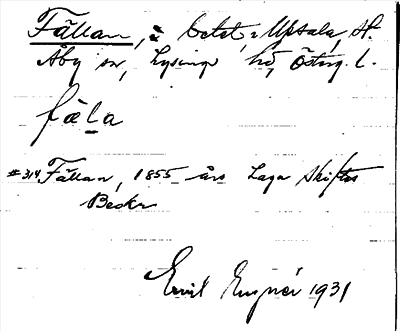 Fällan, i betet, Uppsala, St.
Åby sn, Lysings hd, Österg. l.
fäla
#314 Fällan, 1855 års Laga Skiftes
Beskr
Emil Engnér 1931